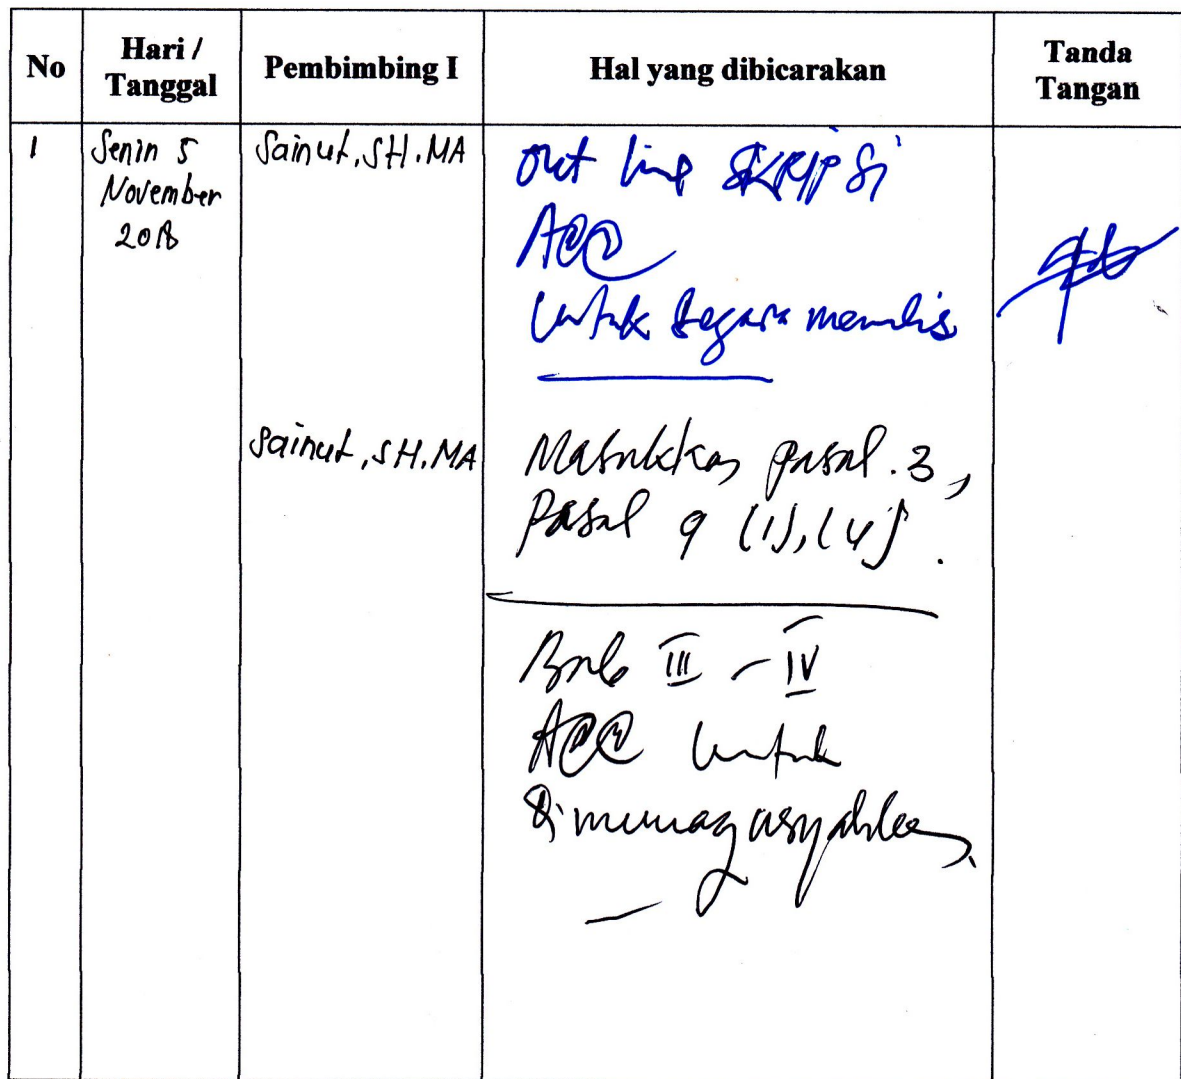 No
Hari /
Tanggal
Pembimbing I
Hal yang dibicarakan
Tanda
Tangan
1
Senin 5
November
2018
Sainul, SH, MA
Out line SKRIPSI
ACC
Untuk segara menulis
Sainul, SH, MA
Masukkan pasal. 3,
Pasal 9 (1), (4).
Bab III - IV
ACC untuk
dimunaqasyahkan.